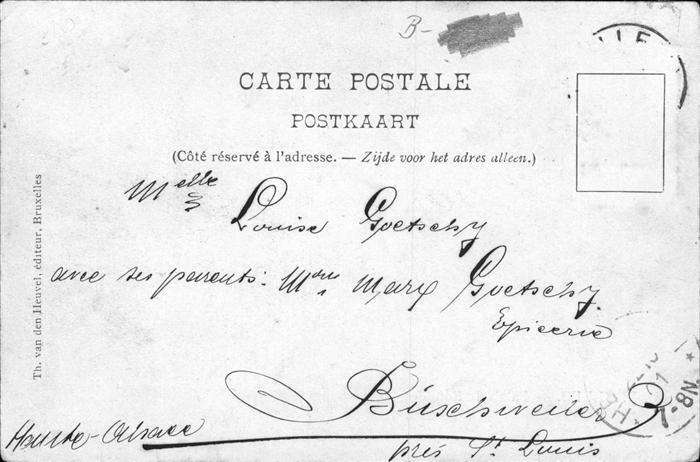 B-
CARTE POSTALE
POSTKAART
(Côté réservé à l'adresse. — Zijde voor het adres alleen.)
Th. van den Heuvel, éditeur, Bruxelles
Melle
Louise Goetschy
avec ses parents: Mme Marx Goetschy.
Epicerie
Buschweiler
Haute-Alsace
près St Louis